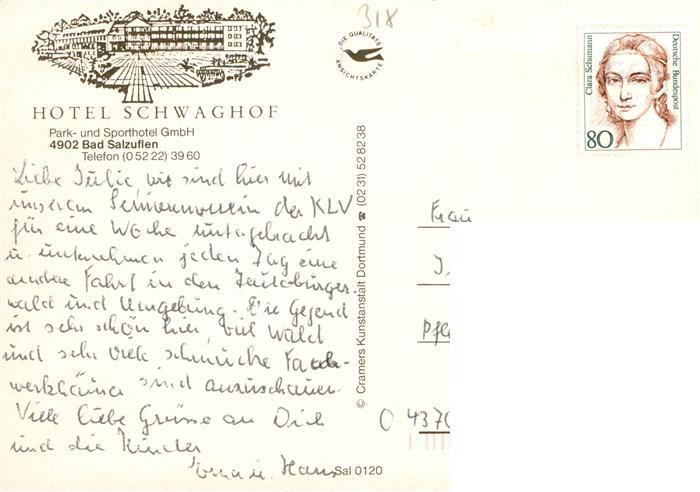 318
DIE QUALITÄTS
ANSICHTSKARTE
Clara Schumann
Deutsche Bundespost
80
HOTEL SCHWAGHOF
Park- und Sporthotel GmbH
4902 Bad Salzuflen
Telefon (0 52 22) 39 60
Liebe Julie, wir sind hier mit
unserem Seniorenverein der KLV
für eine Woche untergebracht
u. unternehmen jeden Tag eine
andere Fahrt in den Teutoburger
wald und Umgebung. Die Gegend
ist sehr schön hier, viel Wald
und sehr viele schmucke Fach-
werkhäuser sind anzuschauen.
Viele liebe Grüsse an Dich
und die Kinder
Erna u. Hans
Sal 0120
© Cramers Kunstanstalt Dortmund ☎ (02 31) 52 82 38
Frau
J.
Pfle
O 4370